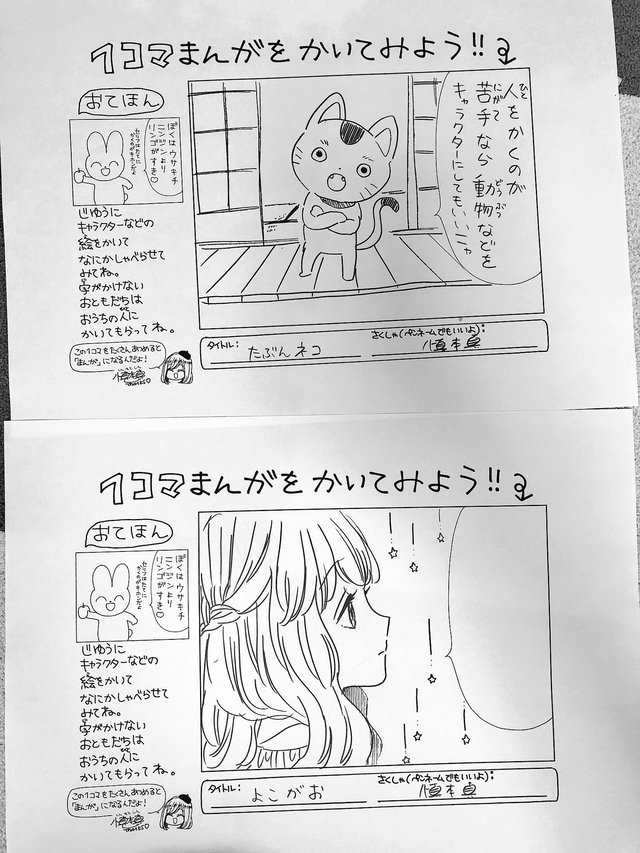 1コマまんがをかいてみよう!!
おてほん
ぼくはウサキチ
ニンジンより
リンゴがすき♡
セリフはたてに
かくのがキホンだよ
じゆうに
キャラクターなどの
絵をかいて
なにかしゃべらせて
みてね。
字がかけない
おともだちは
おうちの人に
かいてもらってね。
この1コマをたくさんあつめると
「まんが」になるんだよ!
人をかくのが
苦手なら動物などを
キャラクターにしてもいいニャ
タイトル: たぶんネコ
さくしゃ(ペンネームでもいいよ): 慎本真
1コマまんがをかいてみよう!!
おてほん
ぼくはウサキチ
ニンジンより
リンゴがすき♡
セリフはたてに
かくのがキホンだよ
じゆうに
キャラクターなどの
絵をかいて
なにかしゃべらせて
みてね。
字がかけない
おともだちは
おうちの人に
かいてもらってね。
この1コマをたくさんあつめると
「まんが」になるんだよ!
タイトル: よこがお
さくしゃ(ペンネームでもいいよ): 慎本真